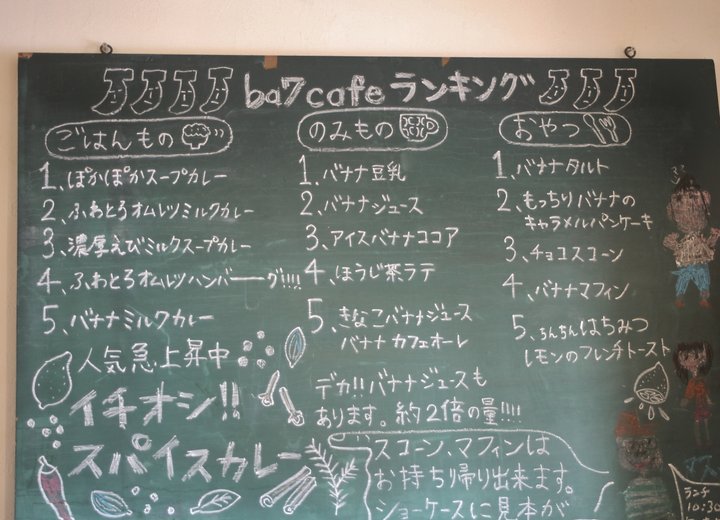 ba7cafeランキング
ごはんもの
1、ぽかぽかスープカレー
2、ふわとろオムレツミルクカレー
3、濃厚えびミルクスープカレー
4、ふわとろオムレツハンバーーグ!!!!
5、バナナミルクカレー
人気急上昇中
イチオシ!!
スパイスカレー
のみもの
1、バナナ豆乳
2、バナナジュース
3、アイスバナナココア
4、ほうじ茶ラテ
5、きなこバナナジュース
バナナカフェオーレ
デカ!!バナナジュースも
あります。約2倍の量!!!!
スコーン、マフィンは
お持ち帰り出来ます。
ショーケースに見本が
おやつ
1、バナナタルト
2、もっちりバナナの
キャラメルパンケーキ
3、チョコスコーン
4、バナナマフィン
5、ちんちんはちみつ
レモンのフレンチトースト
ランチ
10:30